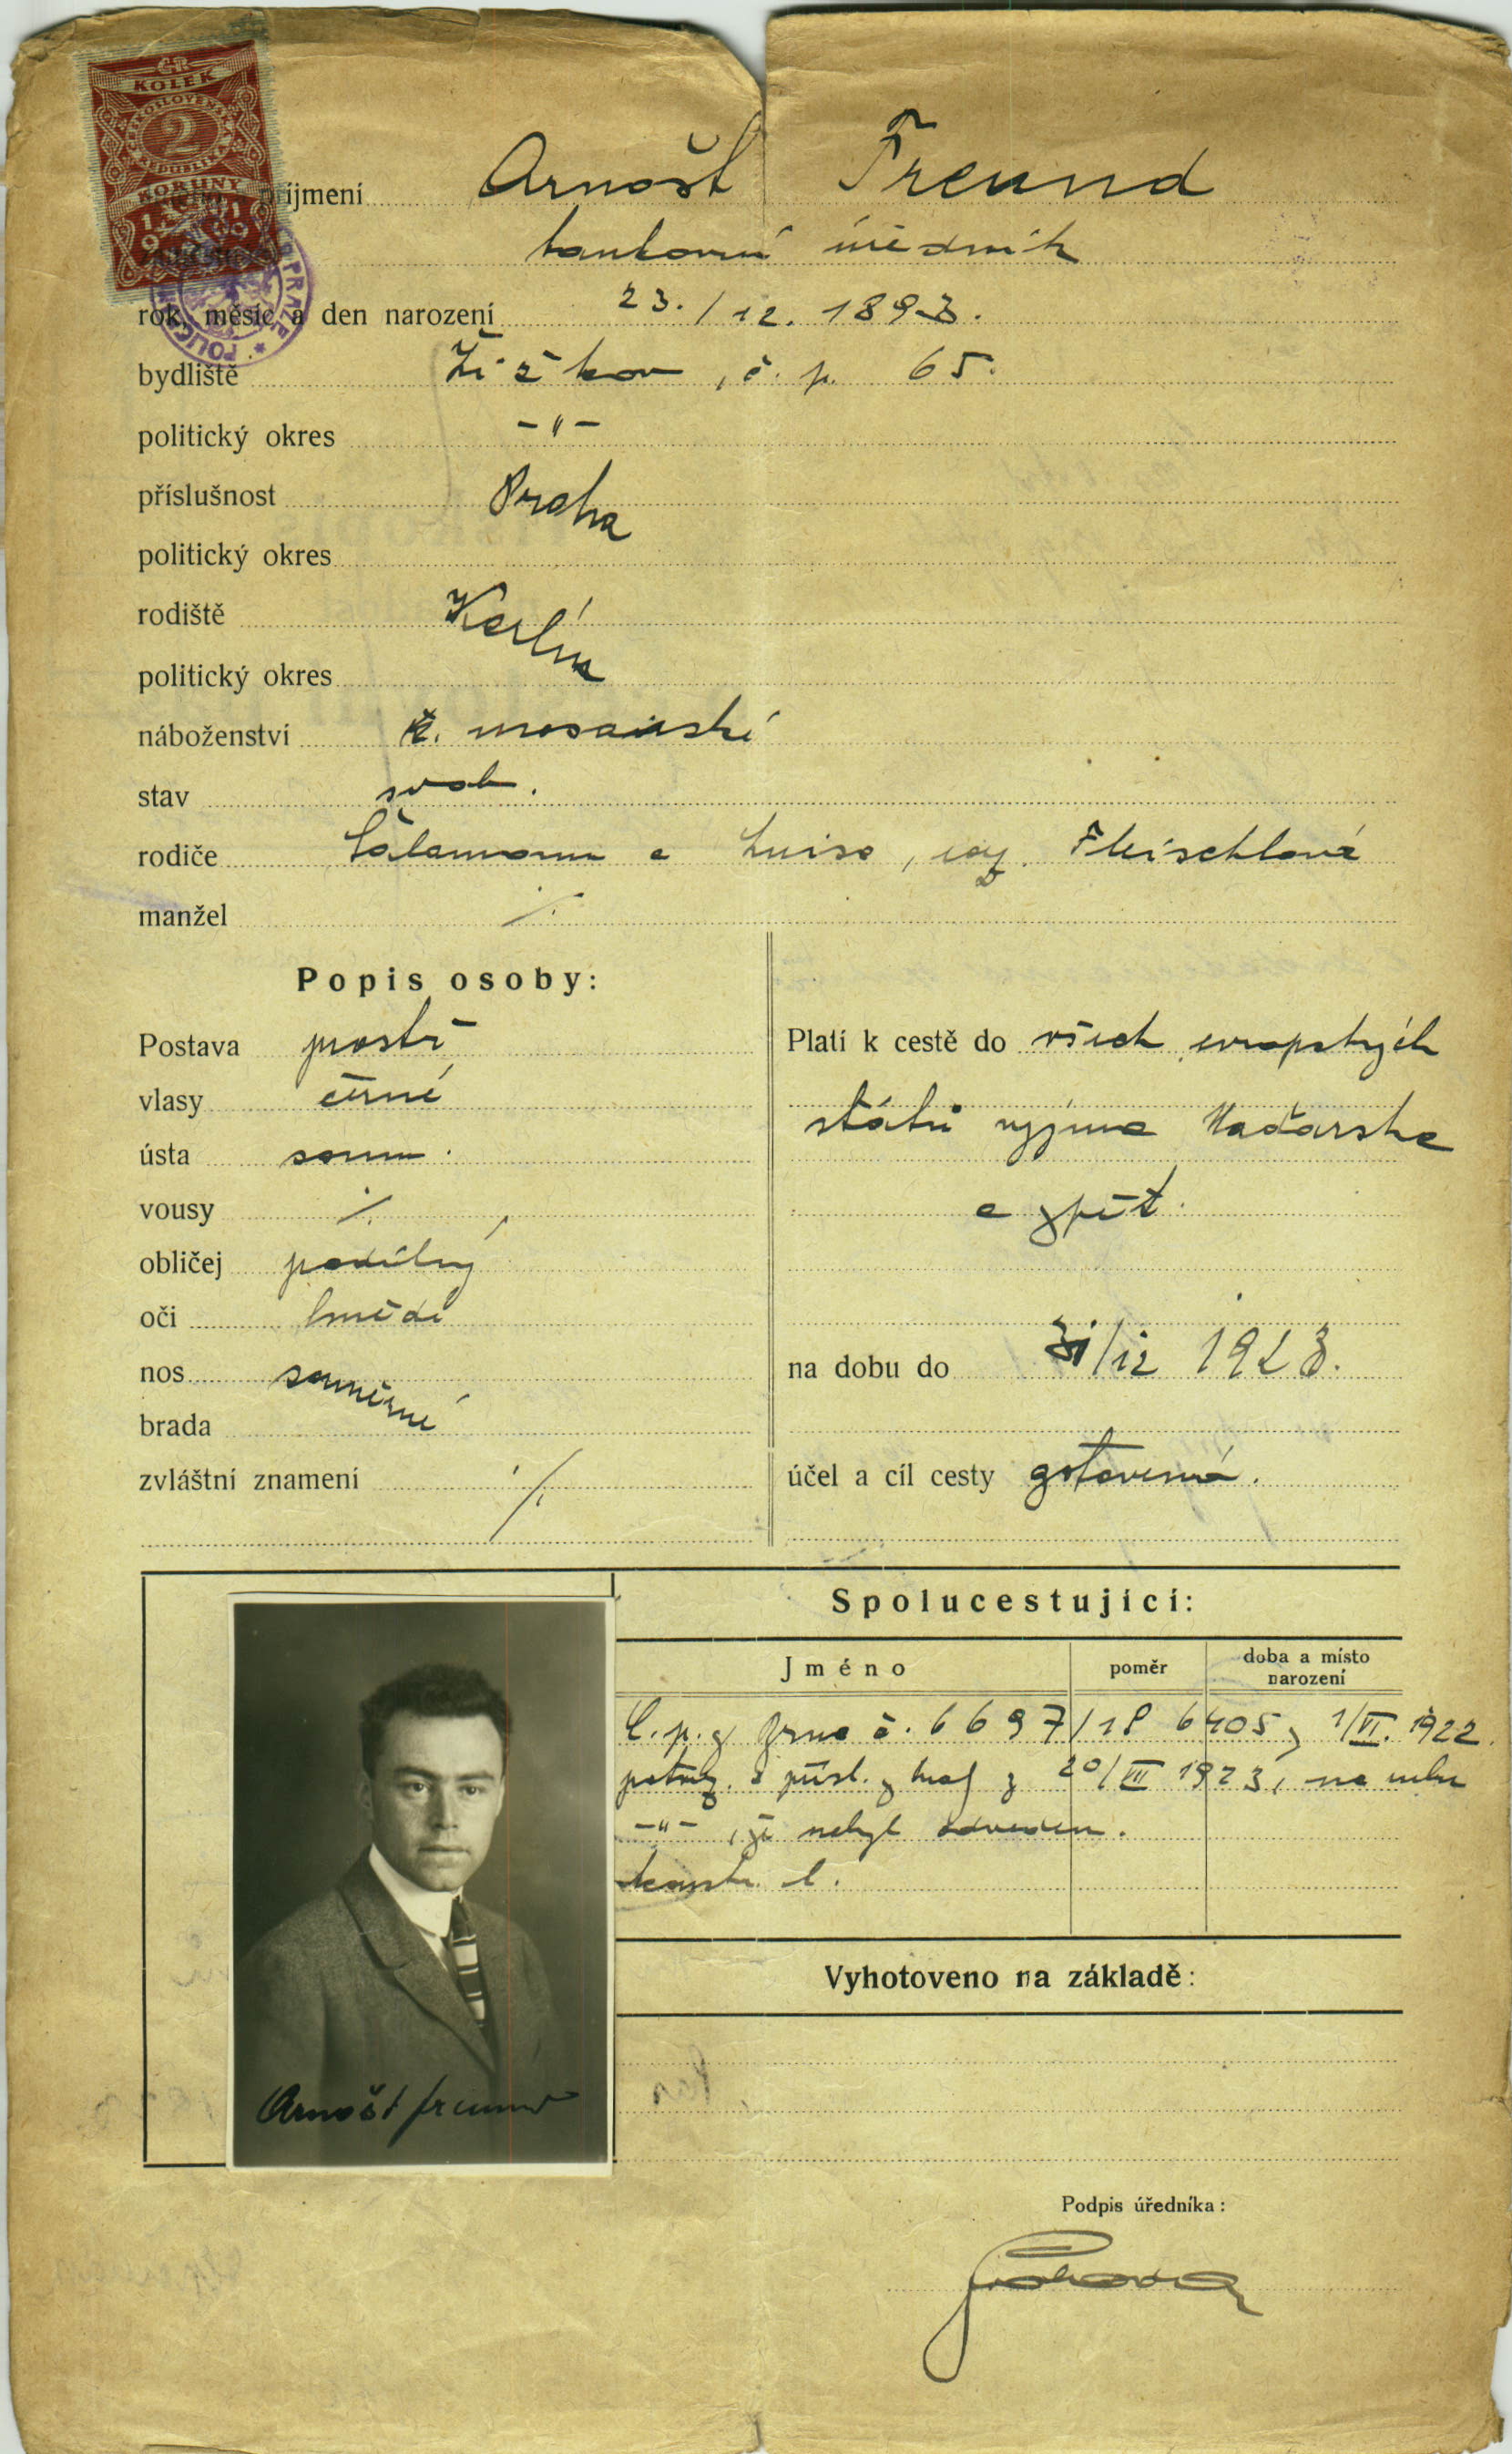 ČR
KOLEK
ČESKOSLOVENSKÁ
2
REPUBLIKA
KORUNY
1919
příjmení Arnošt Freund
bankovní úředník
POLICEJNÍ PRAZE
rok, měsíc a den narození 23./12. 1893.
bydliště Žižkov, č. p. 65.
politický okres -"-
příslušnost Praha
politický okres
rodiště Karlín
politický okres
náboženství mosaiské
stav svob.
rodiče Salamoun a Luisa, roz. Fleischlová
manžel ·/.
Popis osoby:
Postava prostř
vlasy černé
ústa soum.
vousy ·/.
obličej podélný
oči hnědé
nos souměrné
brada
zvláštní znamení ·/.
Platí k cestě do všech evropských
států vyjma Maďarska
a zpět.
na dobu do 31/12 1923.
účel a cíl cesty
Spolucestující:
Jméno poměr doba a místo narození
č. 6697/18 6405, 1/VI. 1922.
přísl. 20/III 1923,
-"- , že nebyl odveden.
Vyhotoveno na základě:
Arnošt Freund
Podpis úředníka: